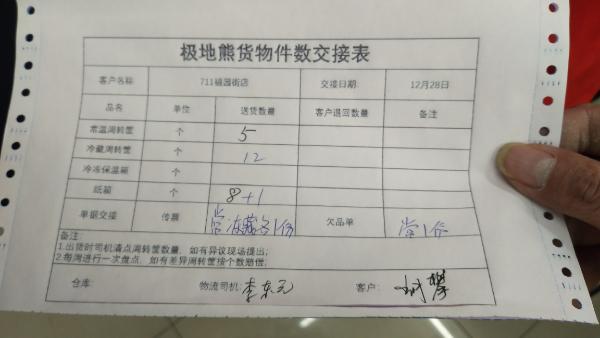 极地熊货物件数交接表
客户名称 711福园街店 交接日期: 12月28日
品名 单位 送货数量 客户退回数量 备注
常温周转筐 个 5
冷藏周转筐 个 12
冷冻保温箱 个
纸箱 个 8+1
单据交接 传票 常冻藏各1份 欠品单 常1份
备注:
1.出货时司机清点周转筐数量,如有异议现场提出;
2.每周进行一次盘点,如有差异周转筐按个数赔偿;
仓库: 物流司机: 李东 客户: